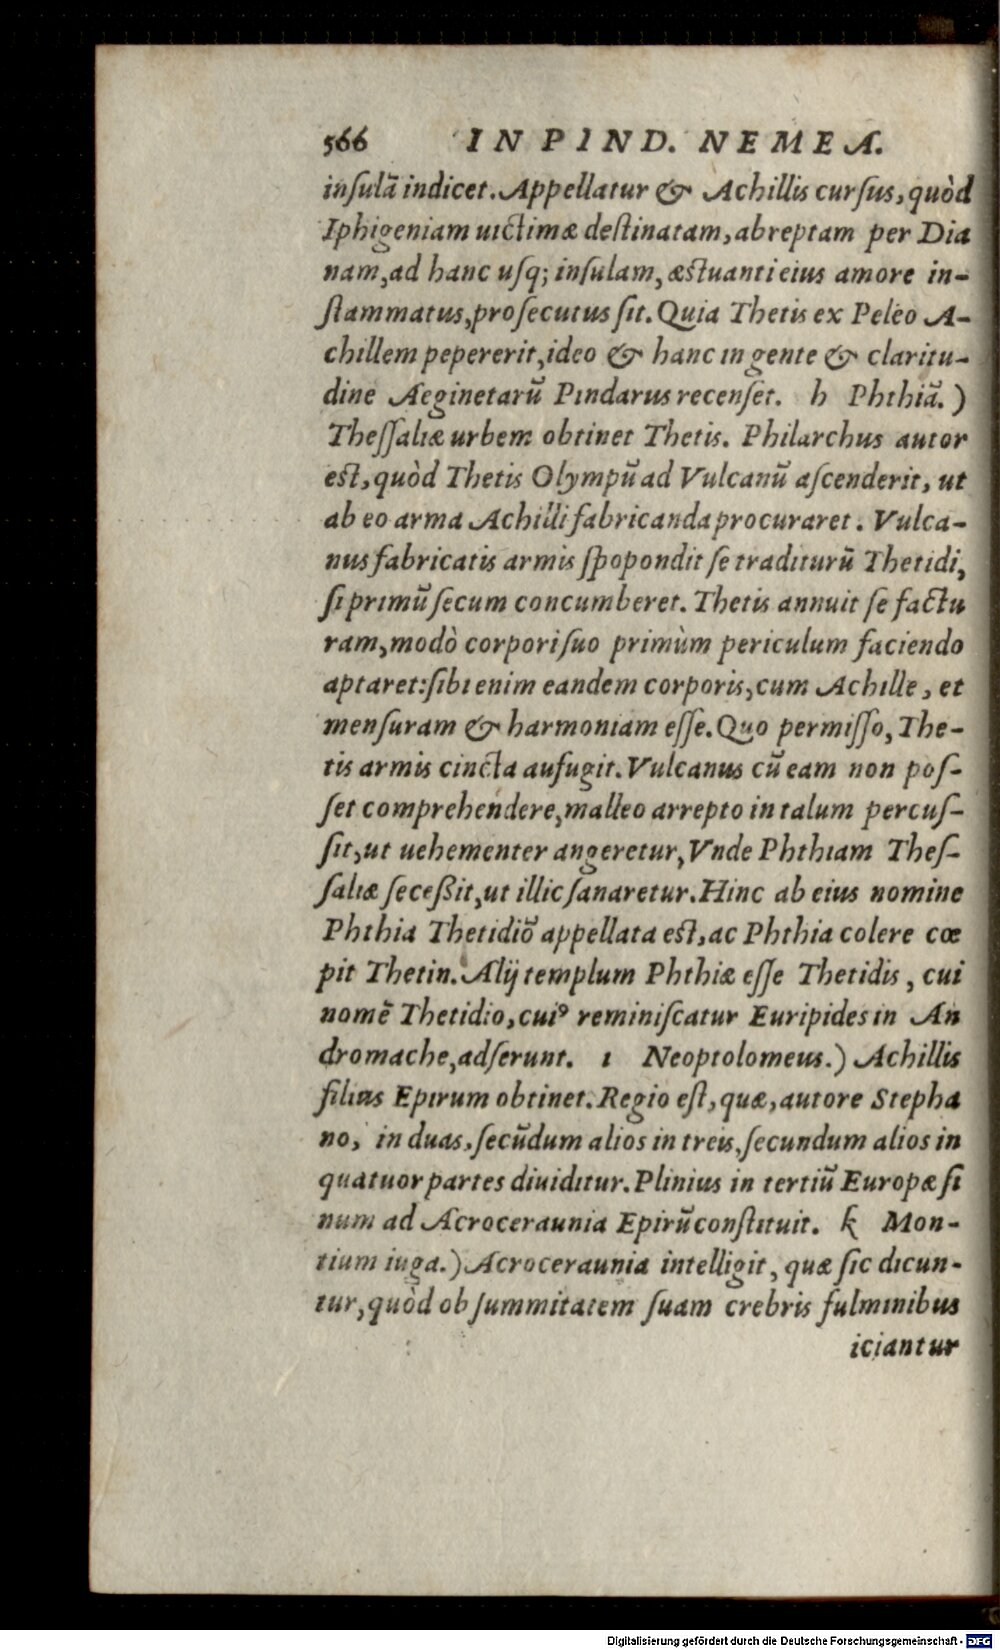 566 IN PIND. NEMEA.
inſulā indicet. Appellatur & Achillis curſus, quòd
Iphigeniam uictimæ deſtinatam, abreptam per Dia
nam, ad hanc uſq; inſulam, æſtuanti eius amore in-
flammatus, proſecutus ſit. Quia Thetis ex Peleo A-
chillem pepererit, ideo & hanc in gente & claritu-
dine Aeginetarū Pindarus recenſet. h Phthiā.)
Theſſaliæ urbem obtinet Thetis. Philarchus autor
eſt, quòd Thetis Olympū ad Vulcanū aſcenderit, ut
ab eo arma Achilli fabricanda procuraret. Vulca-
nus fabricatis armis ſpopondit ſe traditurū Thetidi,
ſi primū ſecum concumberet. Thetis annuit ſe factu
ram, modò corpori ſuo primùm periculum faciendo
aptaret: ſibi enim eandem corporis, cum Achille, et
menſuram & harmoniam eſſe. Quo permiſſo, The-
tis armis cincta aufugit. Vulcanus cū eam non poſ-
ſet comprehendere, malleo arrepto in talum percuſ-
ſit, ut uehementer angeretur, Vnde Phthiam Theſ-
ſaliæ ſeceßit, ut illic ſanaretur. Hinc ab eius nomine
Phthia Thetidiō appellata eſt, ac Phthia colere cœ
pit Thetin. Alij templum Phthiæ eſſe Thetidis, cui
nomē Thetidio, cuiꝰ reminiſcatur Euripides in An
dromache, adſerunt. i Neoptolomeus.) Achillis
filius Epirum obtinet. Regio eſt, quæ, autore Stepha
no, in duas, ſecūdum alios in treis, ſecundum alios in
quatuor partes diuiditur. Plinius in tertiū Europæ ſi
num ad Acroceraunia Epirū conſtituit. k Mon-
tium iuga.) Acroceraunia intelligit, quæ ſic dicun-
tur, quòd ob ſummitatem ſuam crebris fulminibus
iciantur
Digitalisierung gefördert durch die Deutsche Forschungsgemeinschaft - DFG